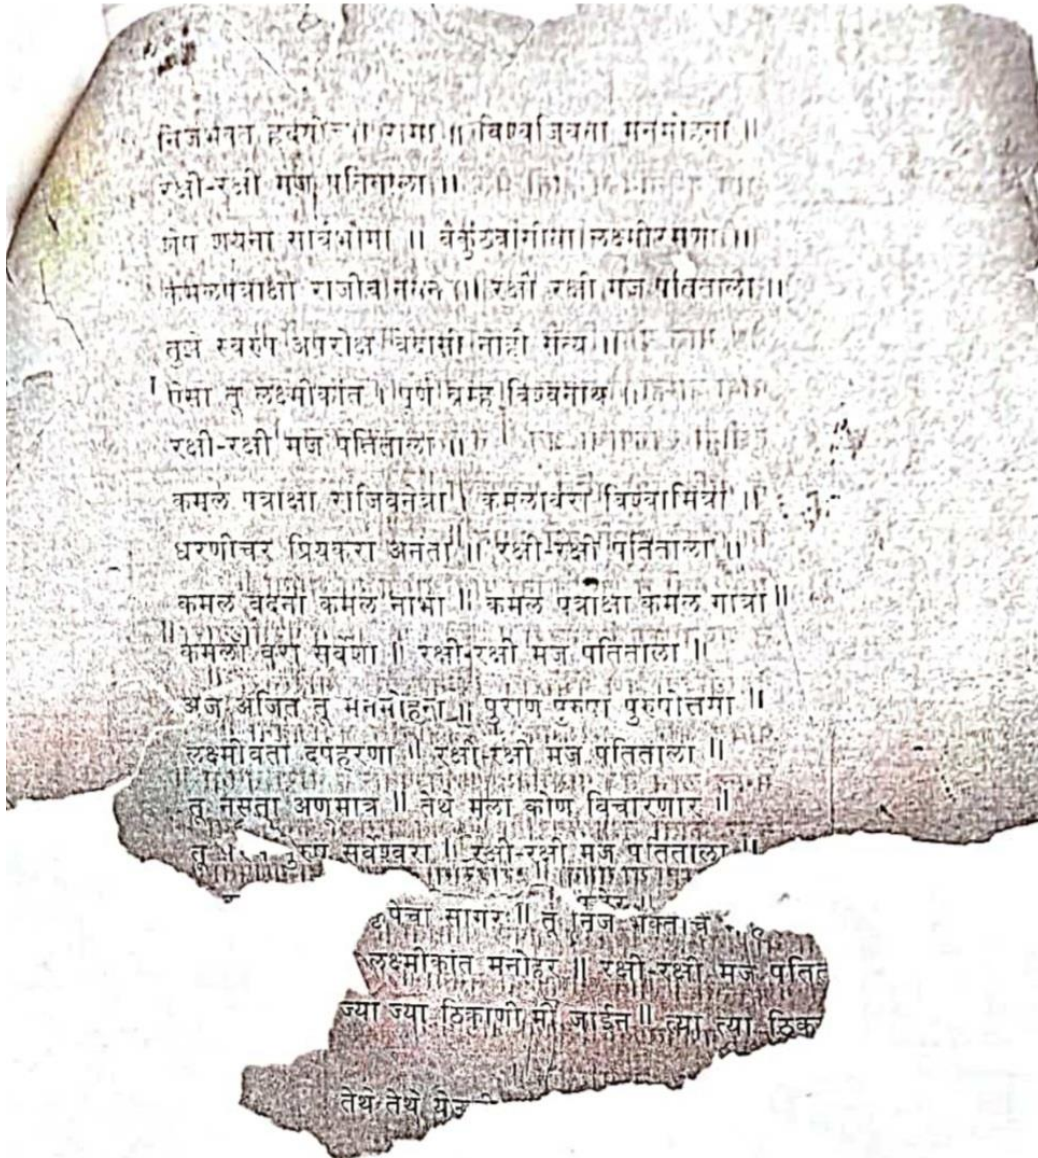 निजभक्त ॥ रामा ॥ विश्वजिवता मनमोहना ॥
रक्षी-रक्षी पतिताला ॥
शेष शयना सार्वभौमा ॥ लक्ष्मीरमणा ॥
कमलपत्राक्षा राजीव नयन ॥ रक्षी रक्षी मज पतिताला ॥
तुझे स्वरुप अपरोक्ष वेदासी नाही सत्य ॥
ऐसा तू लक्ष्मीकांत ॥ पूर्ण ब्रम्ह विश्वनाथ ॥
रक्षी-रक्षी मज पतिताला ॥
कमल पत्राक्षा राजिवनेत्रा । कमलावरा विश्वामित्रा ॥
धरणीचर प्रियकरा अनंता ॥ रक्षी-रक्षी पतिताला ॥
कमल वदना कमल नाभा ॥ कमल पत्राक्षा कमल गात्रा ॥
कमला वरा सर्वेशा ॥ रक्षी-रक्षी मज पतिताला ॥
अज अजित तू मनमोहना ॥ पुराण पुरुषा पुरुषोत्तमा ॥
लक्ष्मीवता दर्पहरणा ॥ रक्षी-रक्षी मज पतिताला ॥
तू नसता अणूमात्र ॥ तेथे मला कोण विचारणार ॥
तू सर्वेश्वरा ॥ रक्षी-रक्षी मज पतिताला ॥
सागर ॥ तू निज
लक्ष्मीकांत मनोहर ॥ रक्षी-रक्षी मज
ज्या ज्या ठिकाणी मी जाईन ॥ त्या त्या
तेथे तेथे